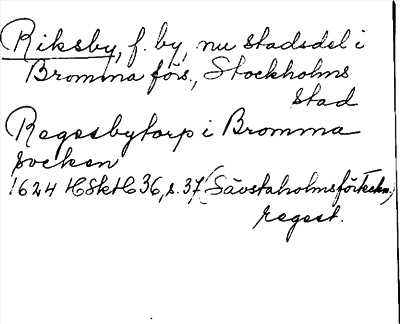 Riksby, f. by, nu stadsdel i
Bromma förs., Stockholms
stad
Regssbytorp i Bromma
socken
1624 HSkH 36, s. 37 (Sävstaholmsförteckn.)
regest.